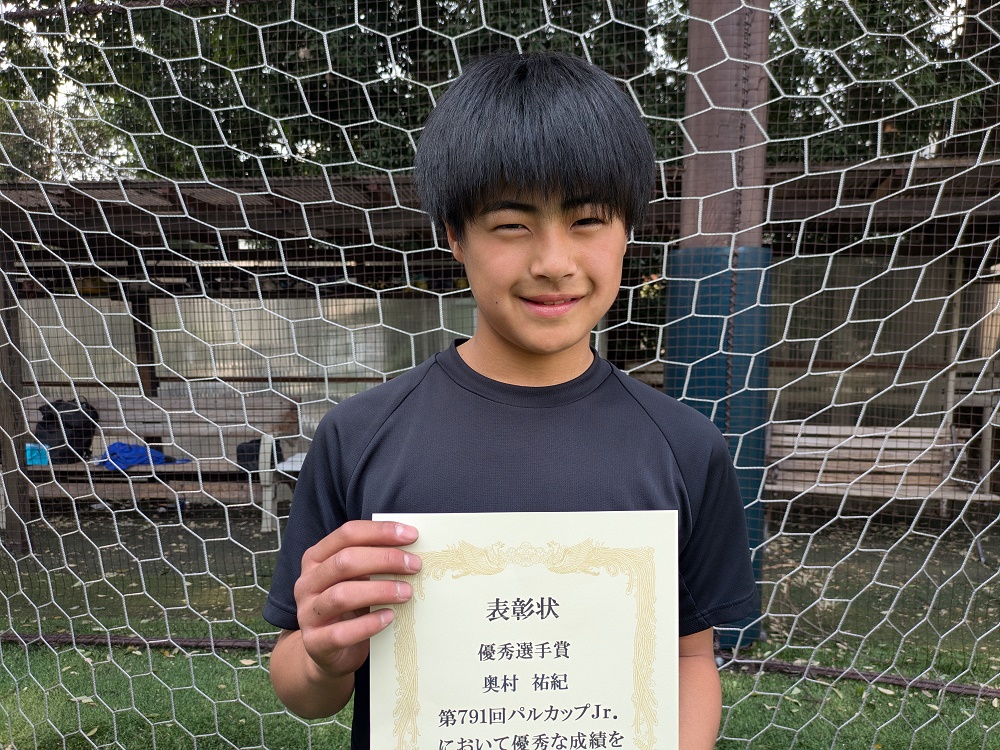 表彰状
優秀選手賞
奥村 祐紀
第791回パルカップJr.
において優秀な成績を